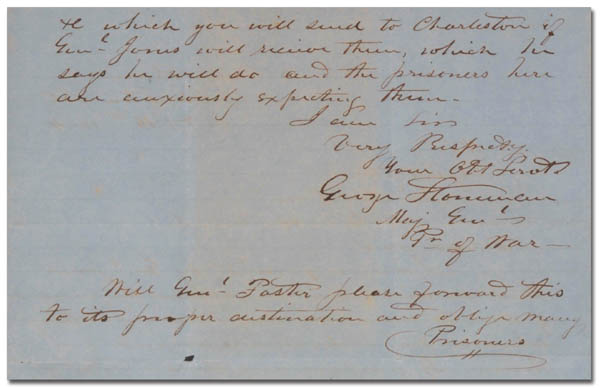 &c which you will send to Charleston if
Genl. Jones will receive them, which he
says he will do and the prisoners here
are anxiously expecting them.
I am Sir
Very Respectly.
Your Obt Servt
George Stoneman
Maj. Genl
Pr of War
Will Genl. Foster please forward this
to its proper distination and oblige many
Prisoners